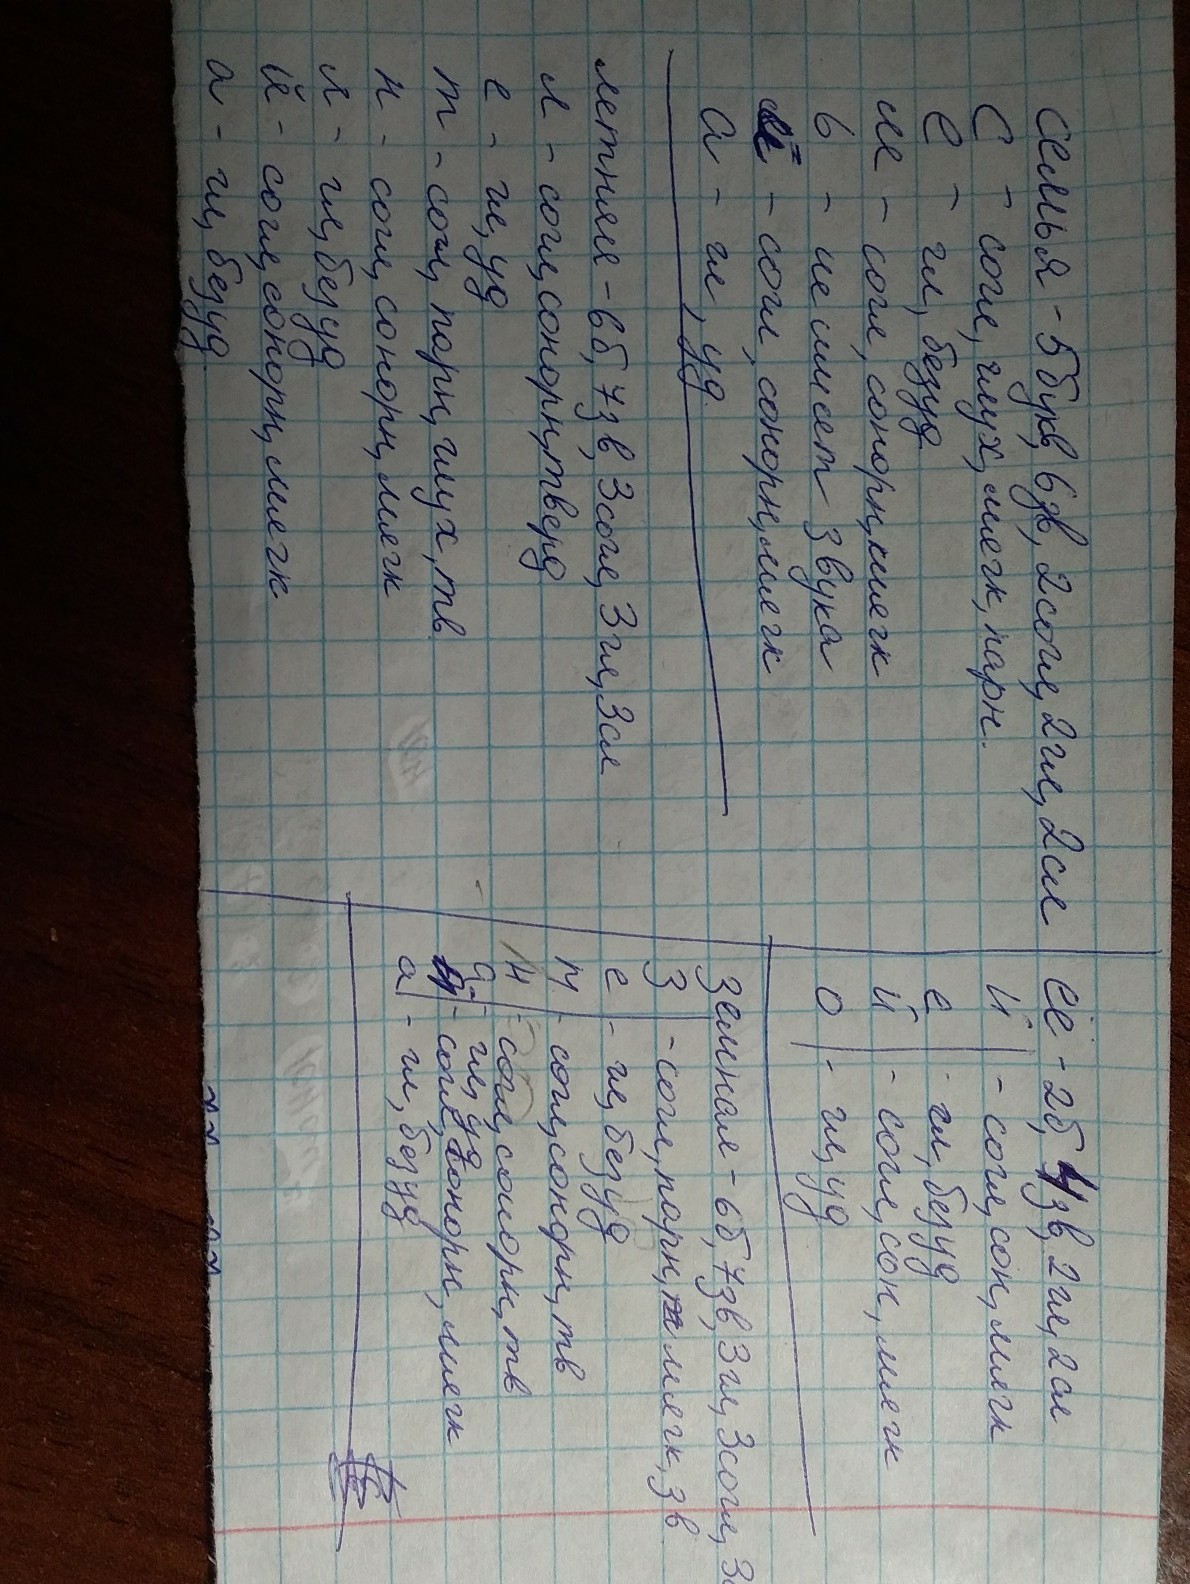 семья - 5 букв, 6 зв, 2 согл, 2 гл, 2 сл
С - согл, глух, мягк, парн.
е - гл, безуд
м - согл, сонорн, мягк
ь - не имеет звука
й - согл, сонорн, мягк
а - гл, уд
летняя - 6б, 7зв, 3 согл, 3 гл, 3 сл
л - согл, сонорн, тверд
е - гл, уд
т - согл, парн, глух, тв
н - согл, сонорн, мягк
я - гл, безуд
й - согл, сонорн, мягк
а - гл, безуд
её - 2б, 4зв, 2 гл, 2 сл
й - согл, сон, мягк
е - гл, безуд
й - согл, сон, мягк
о - гл, уд
земная - 6б, 7зв, 3 гл, 3 согл, 3с
З - согл, парн, мягк, зв
е - гл, безуд
м - согл, сонорн, тв
н - согл, сонорн, тв
а - гл, уд
й - согл, сонорн, мягк
а - гл, безуд